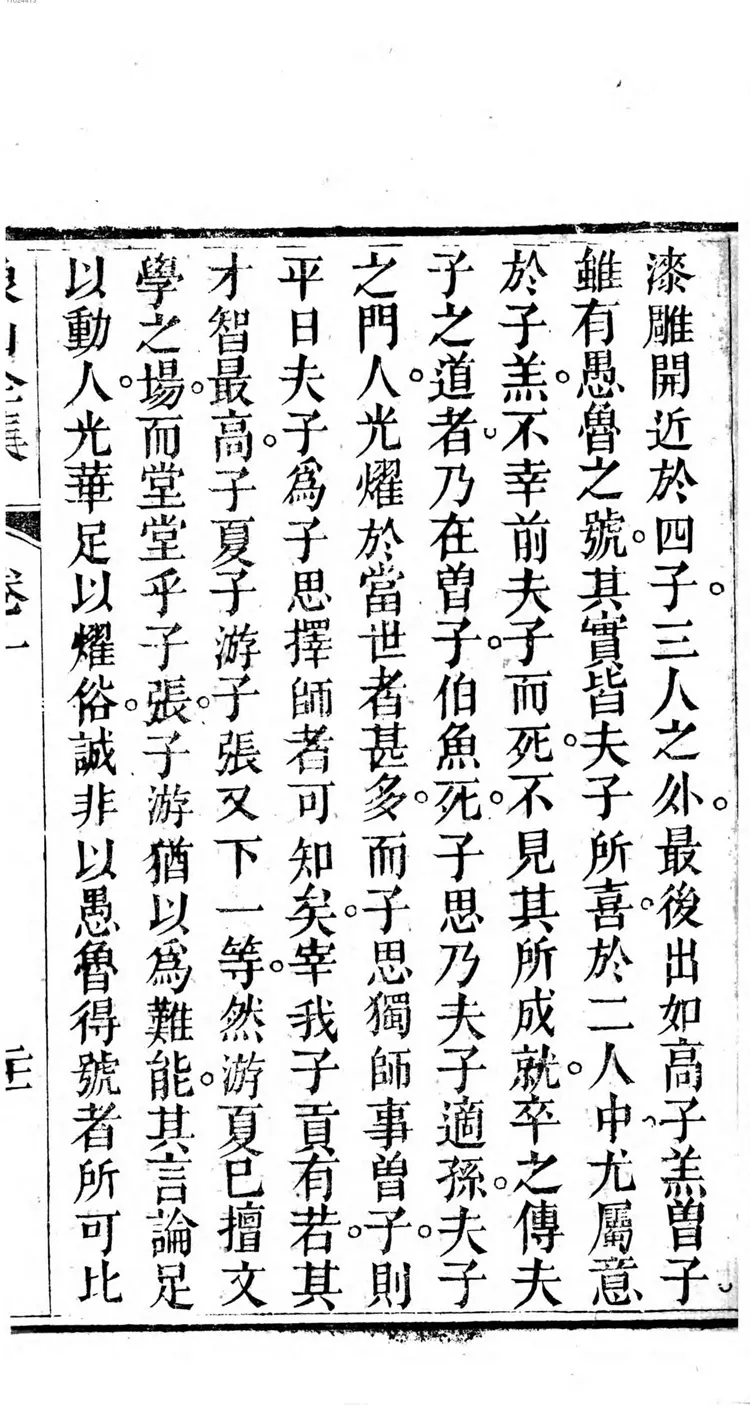 漆雕開近於四子。三人之外。最後出如高子羔曾子
雖有愚魯之號。其實皆夫子所喜。於二人中、尤屬意
於子羔。不幸前夫子而死。不見其所成就。卒之傳夫
子之道者、乃在曾子。伯魚死。子思乃夫子適孫。夫子
之門人。光耀於當世者甚多。而子思獨師事曾子。則
平日夫子爲子思擇師者可知矣。宰我子貢有若。其
才智最高。子夏子游子張又下一等。然游夏已擅文
學之場。而堂堂乎子張。子游猶以爲難能。其言論足
以動人。光華足以耀俗。誠非以愚魯得號者所可比
卷一